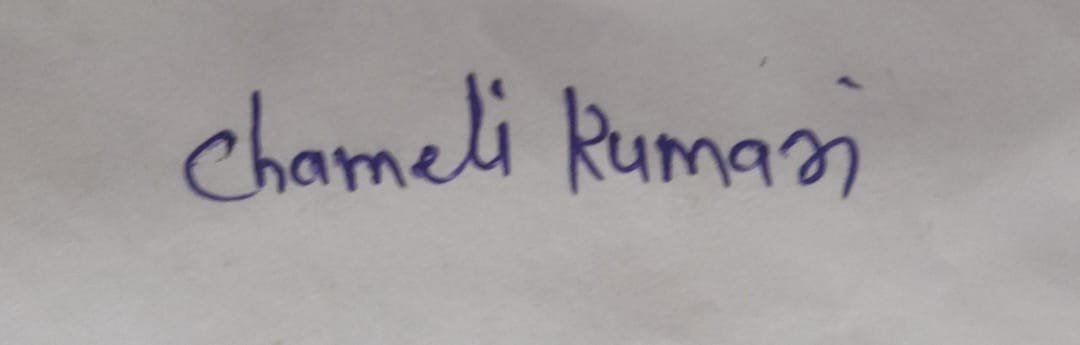 Chameli Kumari